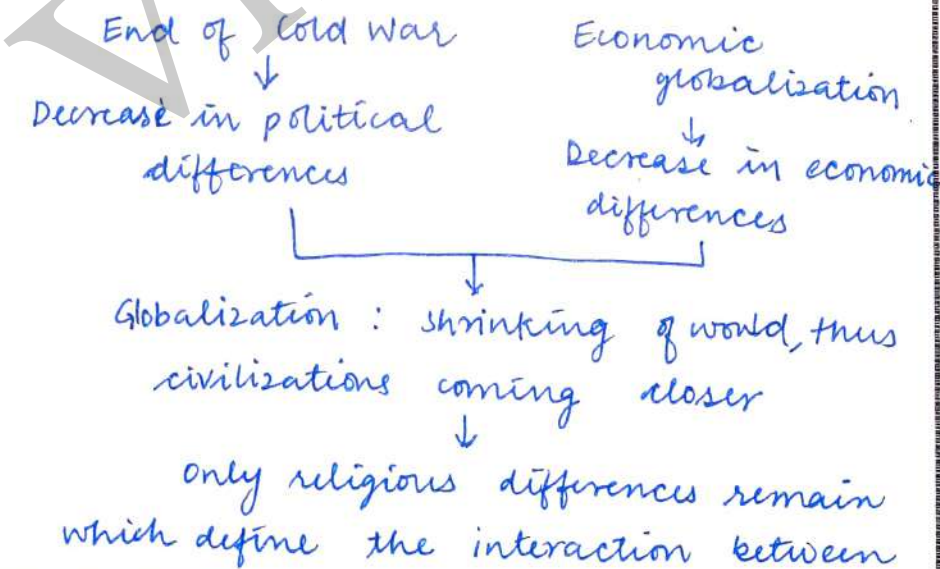 End of Cold War
↓
Decrease in political
differences
Economic
globalization
↓
Decrease in economic
differences
↓
Globalization : shrinking of world, thus
civilizations coming closer
↓
Only religious differences remain
which define the interaction between